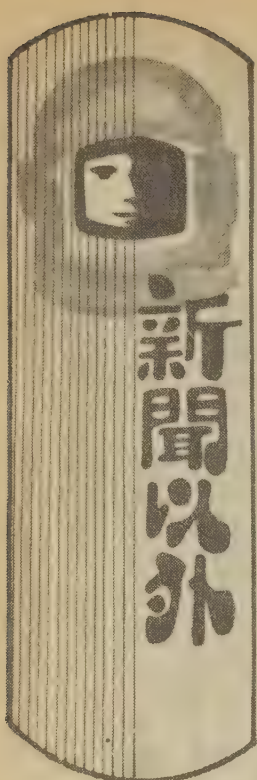 新聞以外